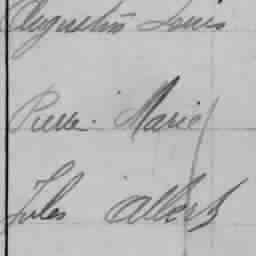 Augustin Louis
Pierre Marie
Jules Albert